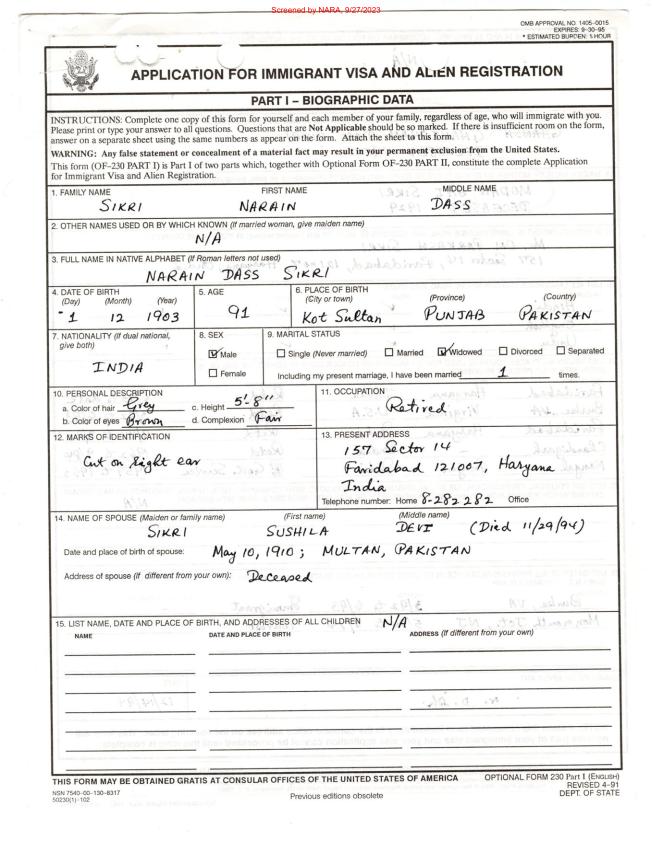 Screened by NARA, 9/27/2023
OMB APPROVAL NO. 1405-0015
EXPIRES: 9-30-95
* ESTIMATED BURDEN: 1 HOUR
APPLICATION FOR IMMIGRANT VISA AND ALIEN REGISTRATION
PART I – BIOGRAPHIC DATA
INSTRUCTIONS: Complete one copy of this form for yourself and each member of your family, regardless of age, who will immigrate with you.
Please print or type your answer to all questions. Questions that are Not Applicable should be so marked. If there is insufficient room on the form,
answer on a separate sheet using the same numbers as appear on the form. Attach the sheet to this form.
WARNING: Any false statement or concealment of a material fact may result in your permanent exclusion from the United States.
This form (OF-230 PART I) is Part I of two parts which, together with Optional Form OF-230 PART II, constitute the complete Application
for Immigrant Visa and Alien Registration.
1. FAMILY NAME FIRST NAME MIDDLE NAME
SIKRI NARAIN DASS
2. OTHER NAMES USED OR BY WHICH KNOWN (If married woman, give maiden name)
N/A
3. FULL NAME IN NATIVE ALPHABET (If Roman letters not used)
NARAIN DASS SIKRI
4. DATE OF BIRTH 5. AGE 6. PLACE OF BIRTH
(Day) (Month) (Year) (City or town) (Province) (Country)
1 12 1903 91 Kot Sultan PUNJAB PAKISTAN
7. NATIONALITY (If dual national, give both) 8. SEX 9. MARITAL STATUS
INDIA Male Single (Never married) Married Widowed Divorced Separated
Female Including my present marriage, I have been married 1 times.
10. PERSONAL DESCRIPTION 11. OCCUPATION
a. Color of hair Grey c. Height 5'-8" Retired
b. Color of eyes Brown d. Complexion Fair
12. MARKS OF IDENTIFICATION 13. PRESENT ADDRESS
Cut on Right ear 157 Sector 14
Faridabad 121007, Haryana
India
Telephone number: Home 8-282282 Office
14. NAME OF SPOUSE (Maiden or family name) (First name) (Middle name)
SIKRI SUSHILA DEVI (Died 11/29/94)
Date and place of birth of spouse: May 10, 1910; MULTAN, PAKISTAN
Address of spouse (If different from your own): Deceased
15. LIST NAME, DATE AND PLACE OF BIRTH, AND ADDRESSES OF ALL CHILDREN N/A
NAME DATE AND PLACE OF BIRTH ADDRESS (If different from your own)
THIS FORM MAY BE OBTAINED GRATIS AT CONSULAR OFFICES OF THE UNITED STATES OF AMERICA OPTIONAL FORM 230 Part I (ENGLISH)
REVISED 4-91
DEPT. OF STATE
NSN 7540-00-130-8317
50230(1)-102
Previous editions obsolete